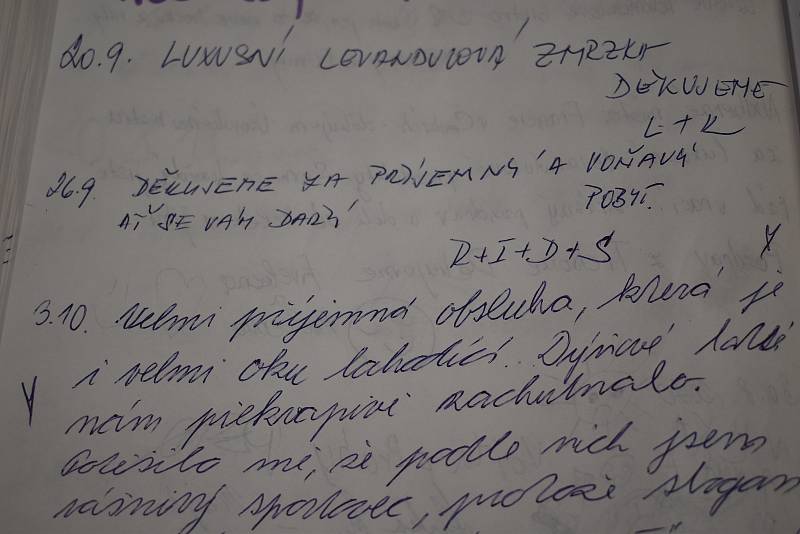 20.9. LUXUSNÍ LEVANDULOVÁ ZMRZKA
DĚKUJEME
L+K
26.9. DĚKUJEME ZA PŘÍJEMNÝ A VOŇAVÝ
POBYT.
AŤ SE VÁM DAŘÍ
R+I+D+S
3.10. Velmi příjemná obsluha, která je
i velmi oku lahodící. Dýňové latté
nám překvapivě zachutnalo.
Potěšilo mě, že podle nich jsem
vášnivý sportovec, protože